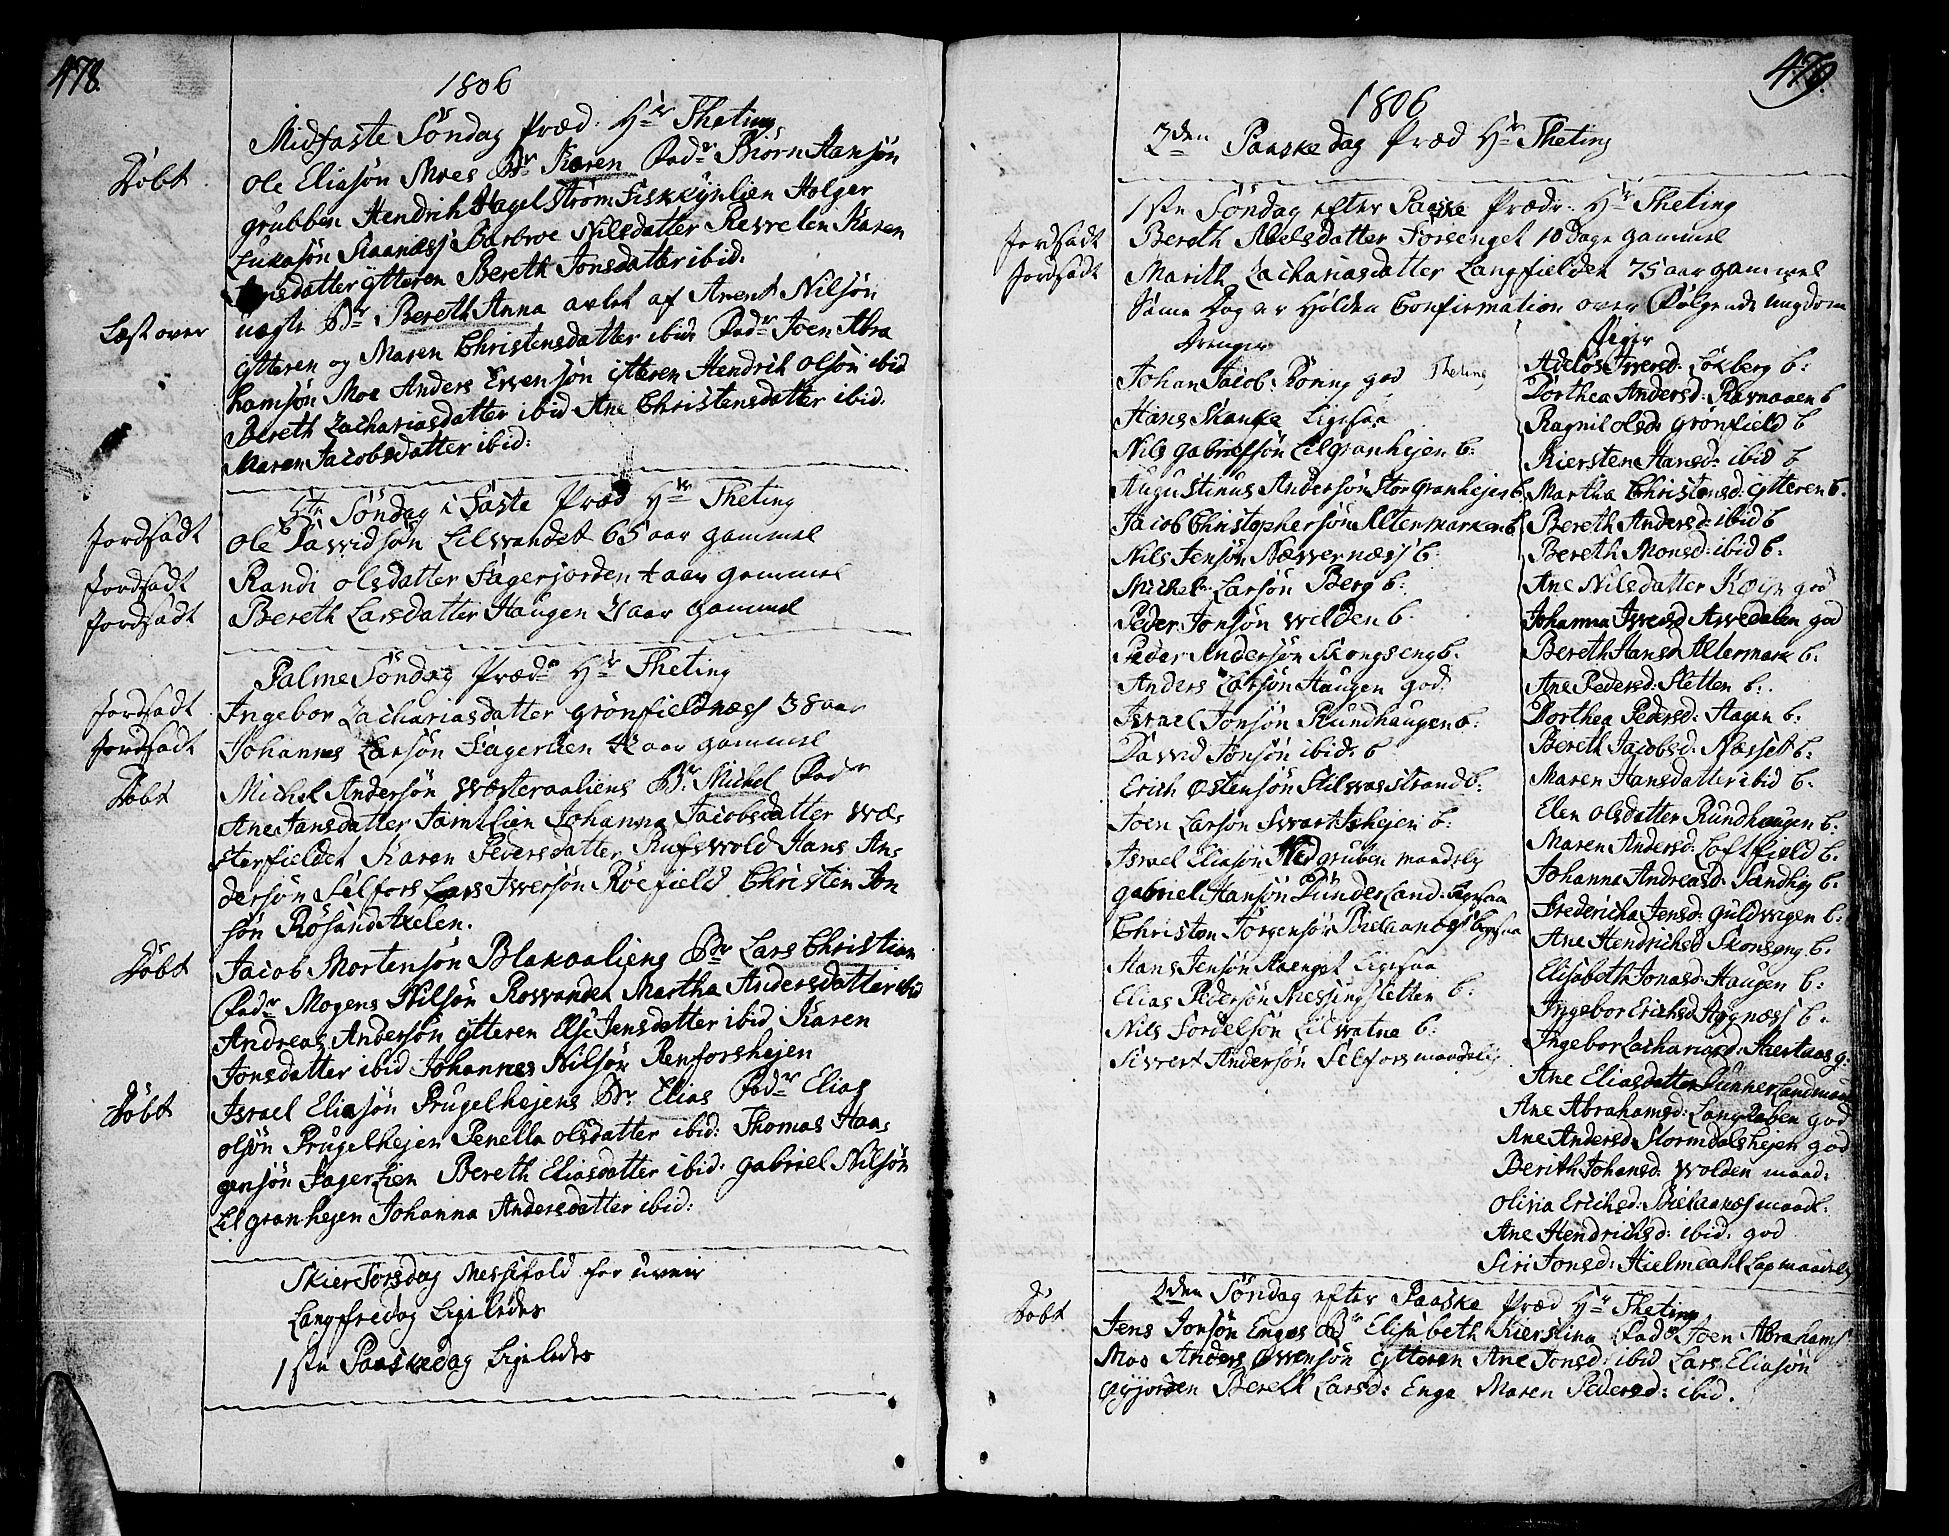 478.
1806
Midfaste Söndag Præd. Hr Theting
Döbt
Ole Eliasön Moes Br Karen Fadr Biörn Hansön
grubben Hendrik Hagelström Fiskkynlien Holger
Lukasön Raanæss Barbroe Nilsdatter Revrelen Karen
datter ytteren Bereth Jonsdatter ibid:
Læst over
uægte Br Bereth Anna avlet af Arent Nilsön
ytteren og Maren Christensdatter ibid: Fadr Joen Abra
hamsön Moe Anders Evensön ytteren Hendrik Olsön ibid
Bereth Zachariasdatter ibid Ane Christensdatter ibid.
Maren Jacobsdatter ibid:
5te Söndag i Faste Præd Hr Theting
Jordfadt
Ole Davidsön Lilvandet 65 aar gammel
Jordfadt
Randi Olsdatter Fagerjorden aar gammel
Jordfadt
Bereth Larsdatter Haugen aar gammel
Palme Söndag Præd: Hr Theting
Jordfadt
Ingebor Zachariasdatter Grönfieldnæss 38 aar
Jordfadt
Johannes Larsön Fagerlien aar gammel
Döbt
Michel Andersön Westeraaliens Br Michel Fadr
Ane Jansdatter Jamtlien Johanna Jacobsdatter Wæ,
sterfieldet Karen Pedersdatter Rufswold Hans An,
dersön Selfors Lars Iversön Röefield Christen Jon
sön Rösand Axelen.
Döbt
Jacob Mortensön Blakaaliens Br Lars Christian
Fadr Mogens Nilsön Rosvandet Martha Andersdatter ibid
Andreas Andersön ytteren Else Jensdatter ibid Karen
Jonsdatter ibid Johannes Nilsön Renforshejen
Döbt
Israel Eliasön Prugelhejens Br Elias Fadr Elias
Olsön Prugelhejen Penella Olsdatter ibid: Thomas Haa,
gensön Fagerlien Bereth Eliasdatter ibid: Gabriel Nilsön
Lilgranhejen Johanna Andersdatter ibid:
Skier Torsdag Messefald for uveir
Langfredag Ligeledes
1ste Paaskedag Ligeledes
479.
1806
2den Paaskedag Præd Hr Theting
1ste Söndag efter Paaske Prædr. Hr Theting
Jordfadt
Bereth Abelsdatter Forsenget 10 Dage gammel
Jordfadt
Marith Zachariasdatter Langfieldet 75 aar gammel
Samme Dag er Holden Confirmation over Fölgende ungdom
Drenger
Johan Jacob: Röring god Theting
Hans Skanke Ligesaa
Nils Gabrielsön Lilgranhejen b:
Augustinus Andersön Storgranhejen b.
Jacob Christophersön Altermarken b
Nils Jensön Næwernæss b.
Michel Larsön Berg b:
Peder Jonsön Welden b.
Peder Andersön Skongseng b.
Anders Larsön Haugen god.
Israel Jonsön Rundhaugen b:
David Jonsön ibid: b
Erich Östensön Stilwasstrand b:
Joen Larsön Swartishejen b:
Israel Eliasön gruben maadelig
Gabriel Hansön Dunderland: Ligesaa
Christen Jörgensön Bielaanæss Ligesaa
Hans Jensön Aaenget Ligesaa
Elias Pedersön Messingsletten b:
Nils Fordelsön Lilwatne b:
Sivvert Andersön Selfors maadelig
Piger
Adelös Iversd: Lökberg b:
Dorthea Andersd: Ravnaaen b
Ragnil Olsd: Grönfield b
Kiersten Hansd: ibid b
Martha Christensd: ytteren b.
Bereth Andersd: ibid b
Bereth Monsd: ibid b.
Ane Nilsdatter god
Johanna Iversd god
Bereth Hansd Altermark b.
Ane Pedersd: Sletten b:
Dorthea Pedersd: Hagen b.
Bereth Jacobsd: Næsset b.
Maren Hansdatter ibid b.
Elen Olsdatter Rundhaugen b.
Maren Andersd: Loftfield b.
Johanna Andreasd: Sandhej b.
Fredericha Jensd: Guldvigen b:
Ane Hendrichsd Skonseng b.
Elisabeth Jonasd: Haugen b:
Ingebor Erichsd Hognæss b.
Ingebor Zachariasd: g:
Ane Eliasdatter Dunnerland
Ane Abrahamsd: god
Ane Andersd Stormdalshejen god
Berith Johansd: Wolden maad:
Olivia Erichsd: Bielaanæs maadl.
Ane Hendrichsd: ibid: god
Siri Jonsd: Hielmdahl Lap maadelig
2den Söndag efter Paaske Præd Hr Theting
Döbt
Jens Jonsön Enges Br Elisabeth Kierstina Fadr Joen Abrahams
Moe Anders Ewensön ytteren Ane Jonsd: ibid Lars Eliasön
Öyjorden Bereth Larsd: Enge Maren Pedersd: ibid.